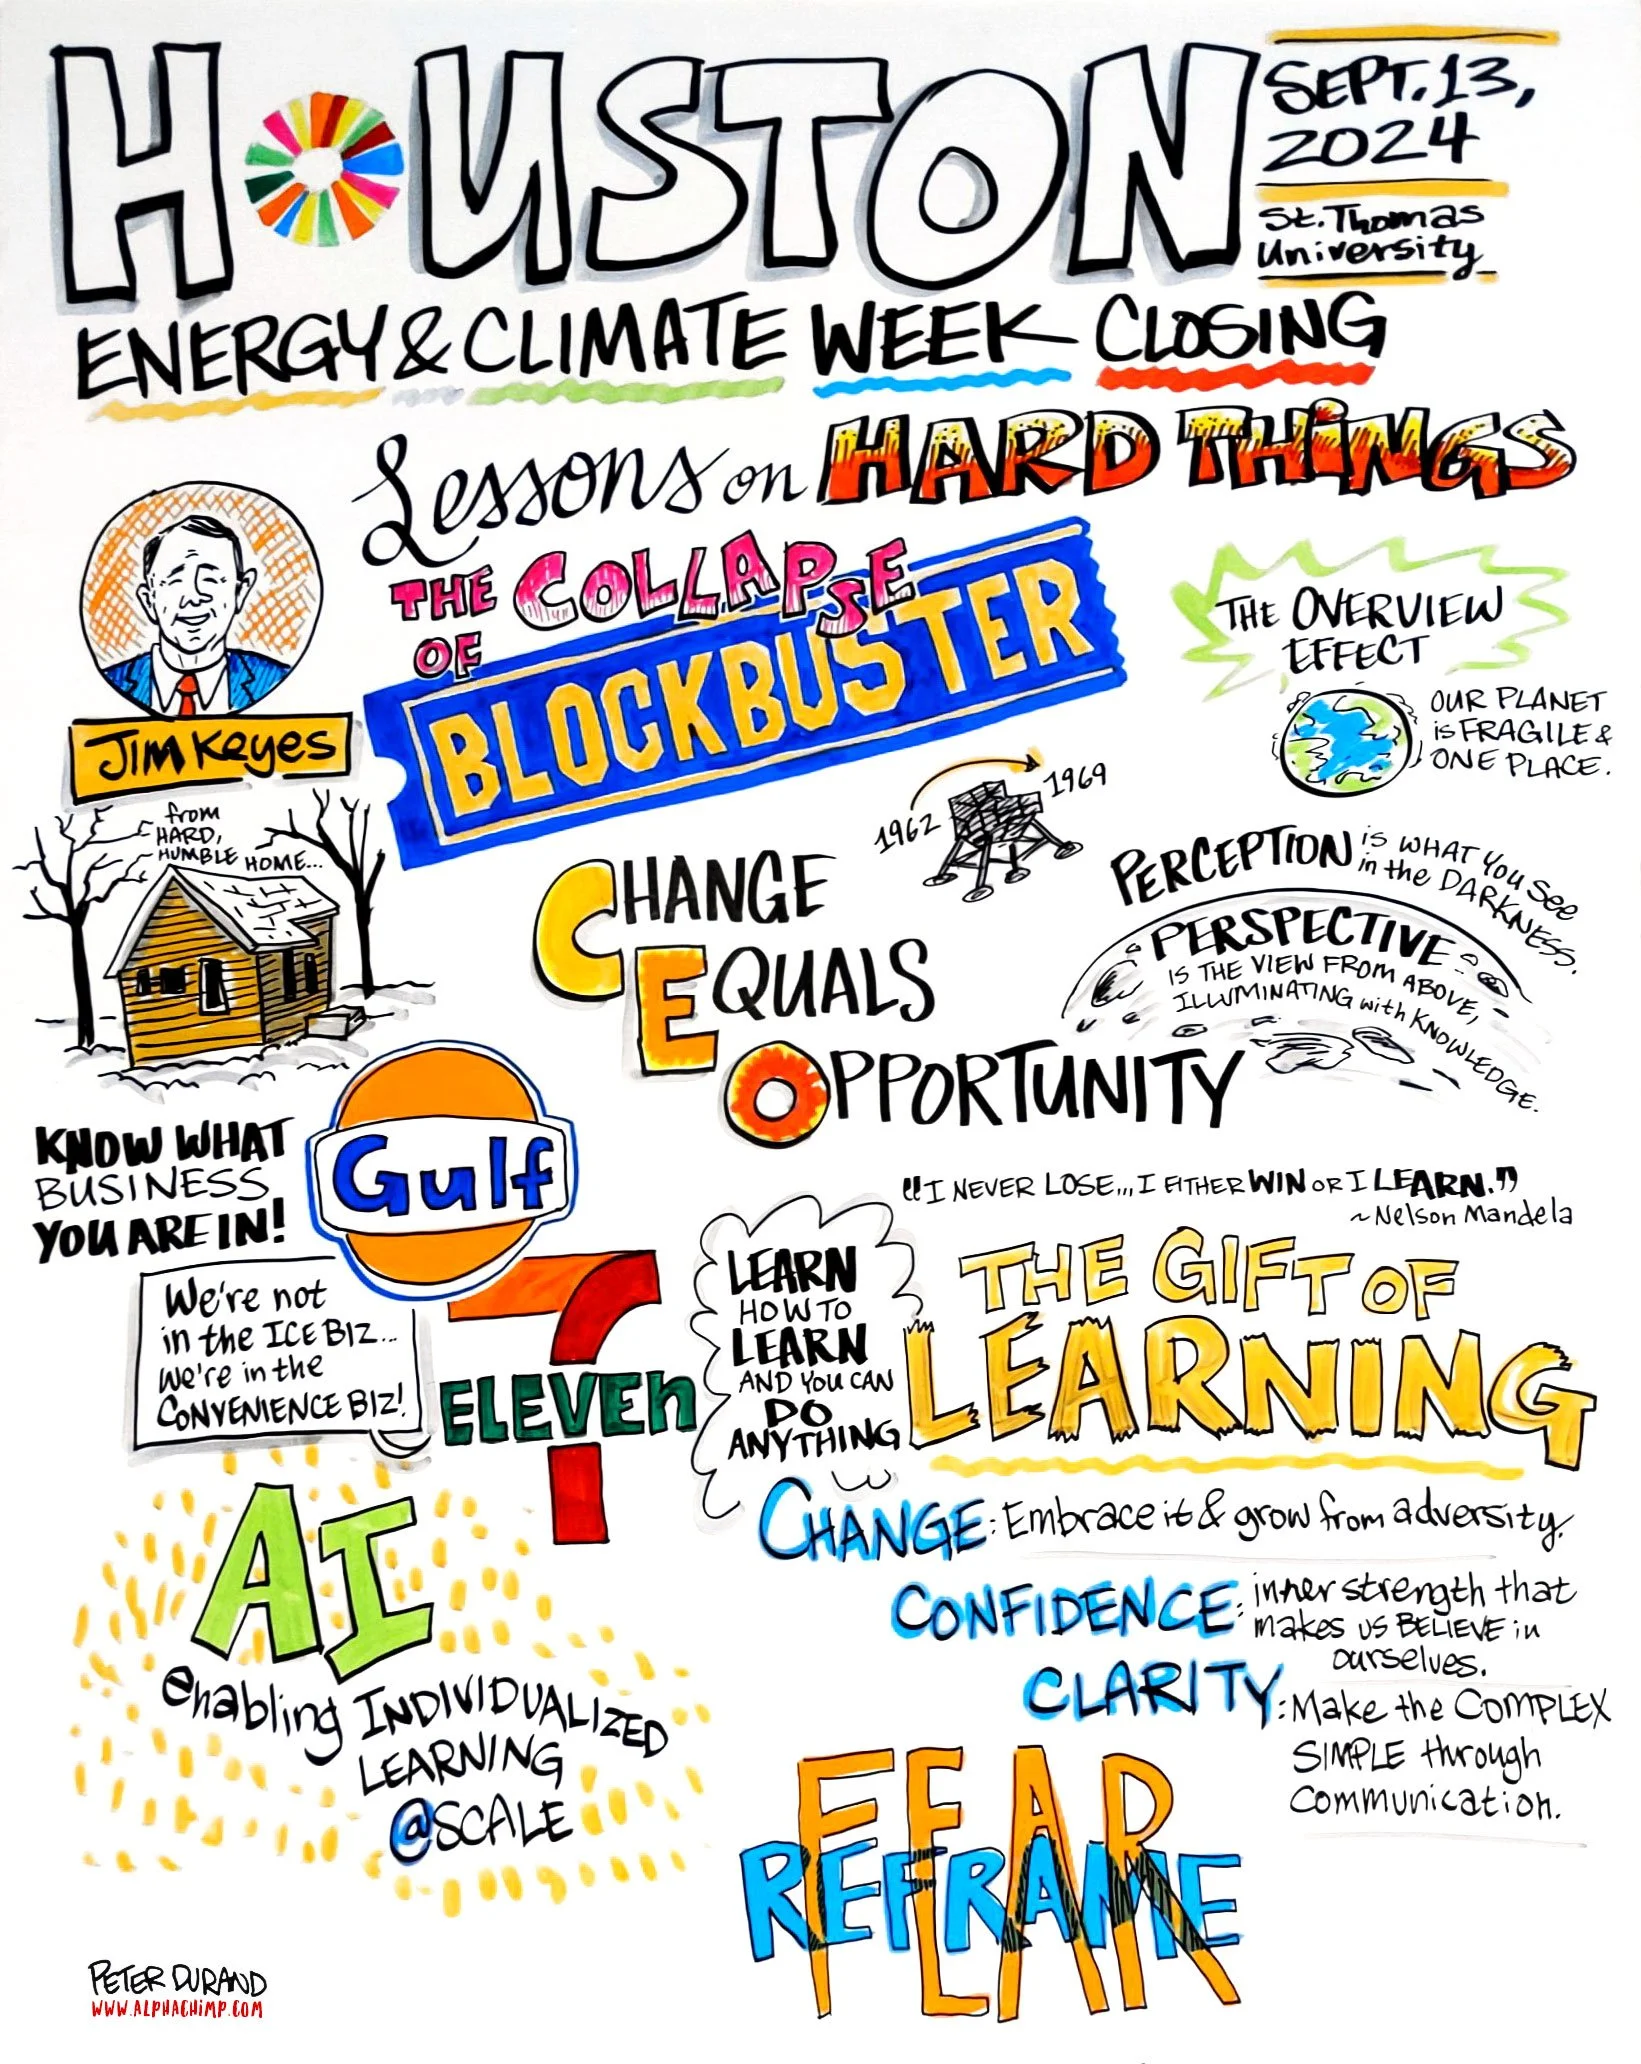 HOUSTON
SEPT. 13,
2024
St. Thomas
University
ENERGY & CLIMATE WEEK CLOSING
Lessons on HARD THiNGS
THE COLLAPSE
OF
BLOCKBUSTER
JiM Keyes
from
HARD,
HUMBLE HOME...
THE OVERVIEW
EFFECT
OUR PLANET
is FRAGILE &
ONE PLACE.
1962
1969
CHANGE
EQUALS
OPPORTUNITY
PERCEPTION is WHAT YOU See
in the DARKNESS.
PERSPECTIVE
IS THE VIEW FROM ABOVE,
ILLUMINATING with KNOWLEDGE.
KNOW WHAT
BUSINESS
YOU ARE IN!
Gulf
We're not
in the ICE BIZ...
we're in the
CONVENIENCE BIZ!
7
ELEVEn
"I NEVER LOSE... I EITHER WIN OR I LEARN."
~ Nelson Mandela
LEARN
HOW TO
LEARN
AND YOU CAN
DO
ANYTHING
THE GIFT OF
LEARNING
CHANGE: Embrace it & grow from adversity.
CONFIDENCE: inner strength that
makes us BELIEVE in
ourselves.
CLARITY: Make the COMPLEX
SIMPLE through
Communication.
AI
enabling INDIVIDUALIZED
LEARNING
@SCALE
FEAR
REFRAME
PETER DURAND
WWW.ALPHACHIMP.COM